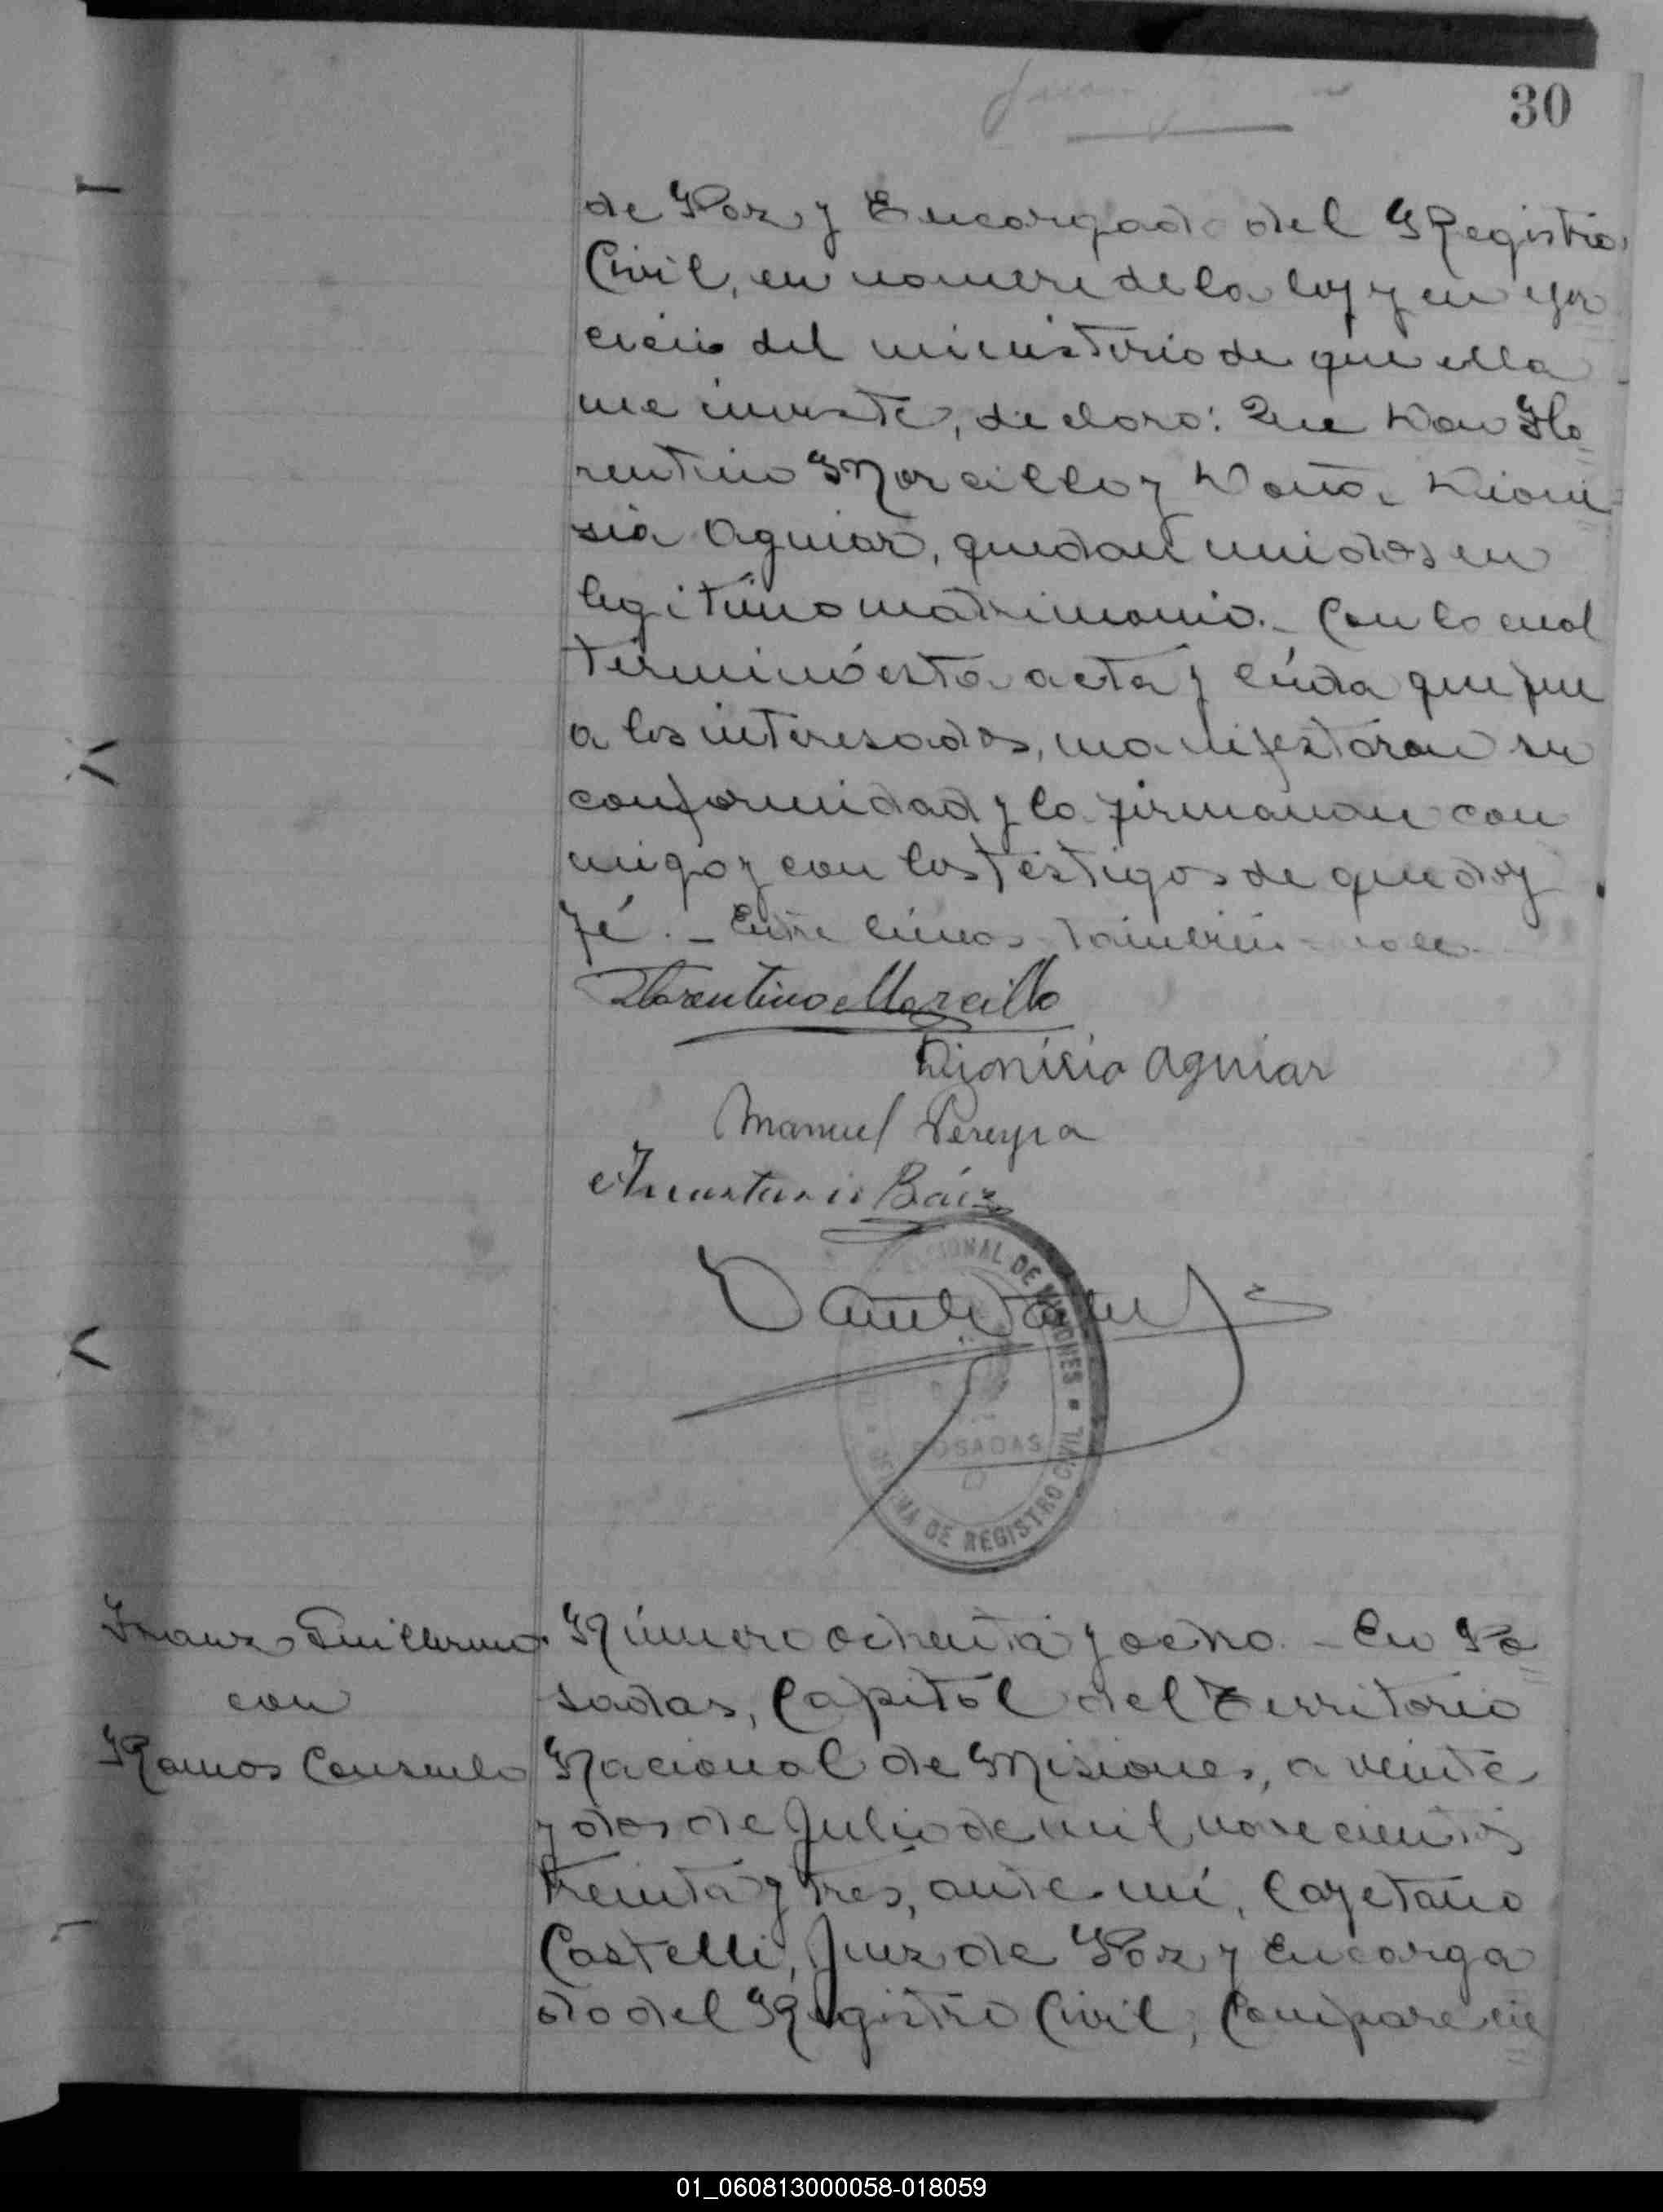 30
de Paz y Encargado del Registro
Civil, en nombre de la ley y en ejer
cicio del ministerio de que ella
me inviste, declaro: Que Don Flo
rentino Morcillo y Doña Dioni
sia Aguiar, quedan unidos en
legitimo matrimonio.- Con lo cual
terminó esta acta y leída que fue
a los interesados, manifestaron su
conformidad y la firmaron con
migo y con los testigos de que doy
fé.- Entre líneas - también - vale.
Florentino Morcillo
Dionisia Aguiar
Manuel Pereyra
Anastasio Báez
NAL DE MISIONES
POSADAS
DE REGISTRO CIVIL
Franz Guillermo
con
Ramos Consuelo
Número ochenta y ocho.- En Po
sadas, Capital del Territorio
Nacional de Misiones, a veinte
y dos de Julio de mil novecientos
treinta y tres, ante mí, Cayetano
Castelli, Juez de Paz y Encarga
do del Registro Civil, Comparecie
01_060813000058-018059